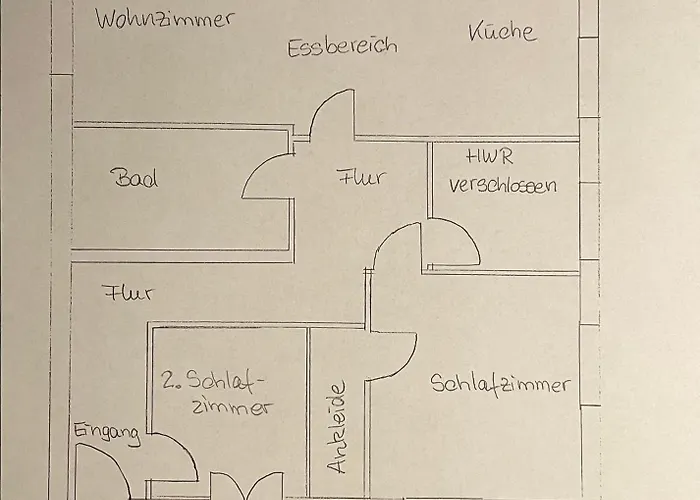 Wohnzimmer
Essbereich
Küche
Bad
Flur
HWR
verschlossen
Flur
2. Schlaf-
zimmer
Ankleide
Schlafzimmer
Eingang